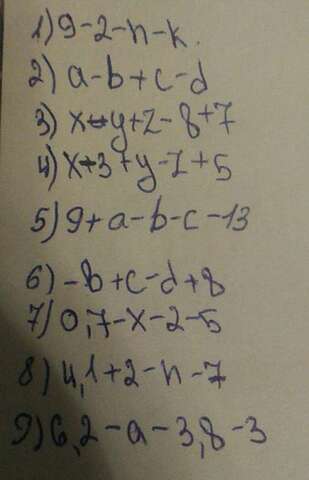 1) 9-2-n-k.
2) a-b+c-d
3) x-y+z-8+7
4) x+3+y-z+5
5) 9+a-b-c-13
6) -b+c-d+8
7) 0,7-x-2-5
8) 4,1+2-n-7
9) 6,2-a-3,8-3